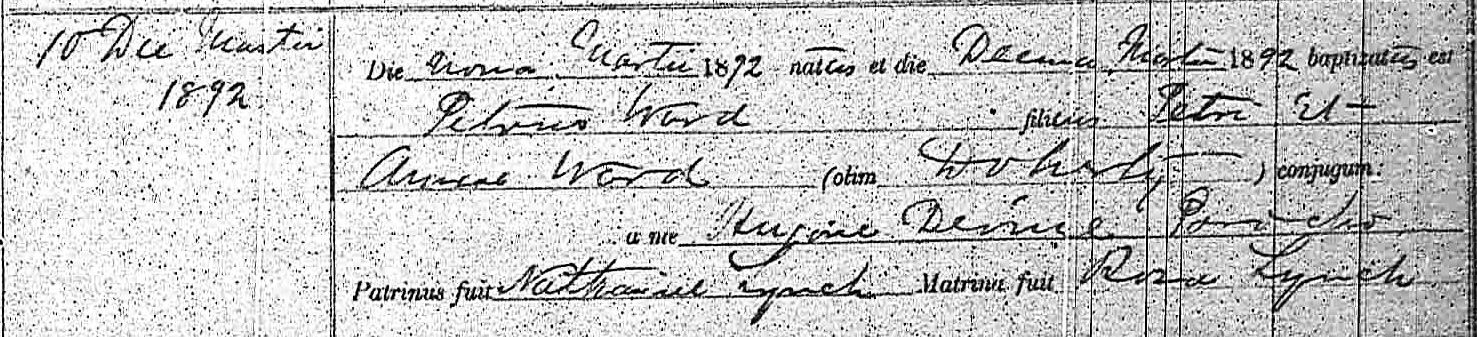 10 Die Martii
1892
Die nona Martii 1892 natus et die Decima Martii 1892 baptizatus est
Petrus Ward filius Petri Et
Annae Ward (olim Doherty) conjugum:
a me Hugone Devine Parocho
Patrinus fuit Nathaniel Lynch Matrina fuit Rosa Lynch